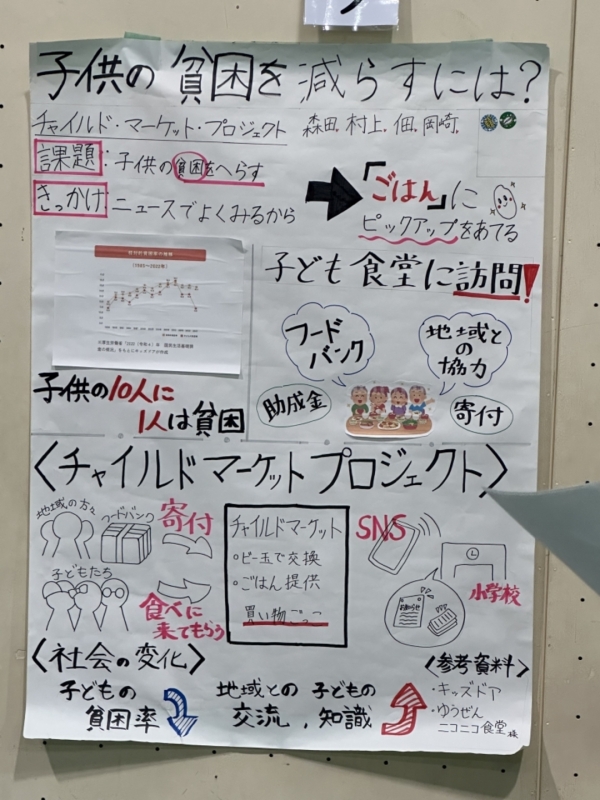 子供の貧困を減らすには?
チャイルド・マーケット・プロジェクト 森田.村上.佃.岡崎.
課題:子供の貧困をへらす
きっかけ:ニュースでよくみるから
「ごはん」に
ピックアップをあてる
子ども食堂に訪問!
フード
バンク
地域と
の
協力
助成金
寄付
子供の10人に
1人は貧困
〈チャイルドマーケットプロジェクト〉
地域の方々
フードバンク
寄付
子どもたち
食べに
来てもらう
チャイルドマーケット
・ビー玉で交換
・ごはん提供
買い物ごっこ
SNS
小学校
お知らせ
〈社会の変化〉
子どもの
貧困率
地域との 子どもの
交流、知識
〈参考資料〉
・キッズドア
・ゆうぜん
ニコニコ食堂様